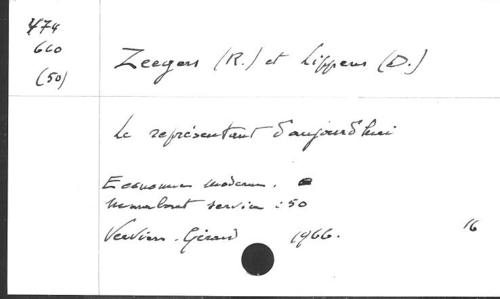 474
660
(50)
Zeegers (R.) et Lippens (D.)
Le représentant d'aujourd'hui
Economie moderne.
Marabout service : 50
Verviers. Gérard 1966.
16